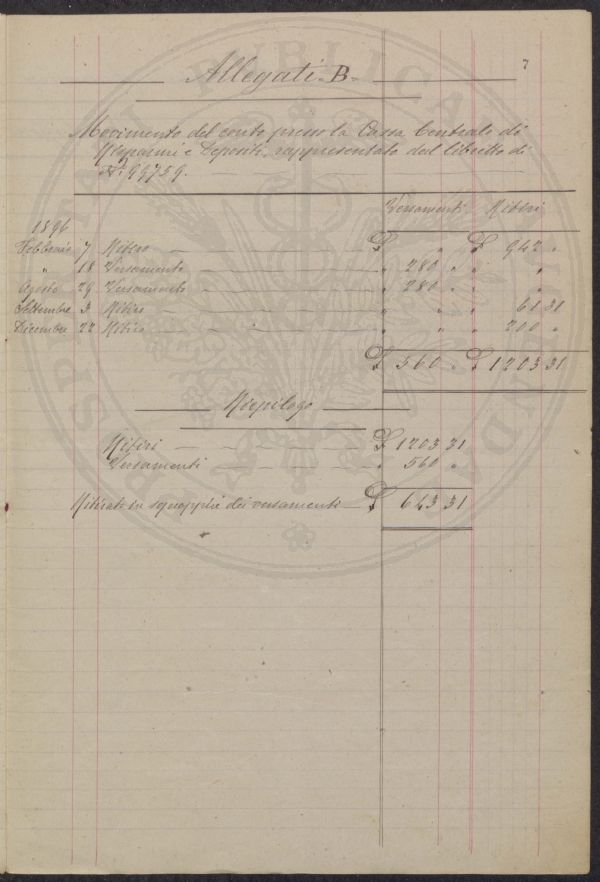 7
Allegati - B -
Movimento del conto presso la Cassa Centrale di
Risparmi e Depositi, rappresentato dal libretto di
N° 99759.
Versamenti Ritiri
1896
Febbraio 7 Ritiro £ " " £ 942 "
" 18 Versamento " 280 " " " "
Agosto 29 Versamento " 280 " " " "
Settembre 3 Ritiro " " " " 61 31
Dicembre 22 Ritiro " " " " 200 "
£ 560 " £ 1203 31
Riepilogo
Ritiri £ 1203 31
Versamenti " 560 "
Ritirato in più dei versamenti £ 643 31